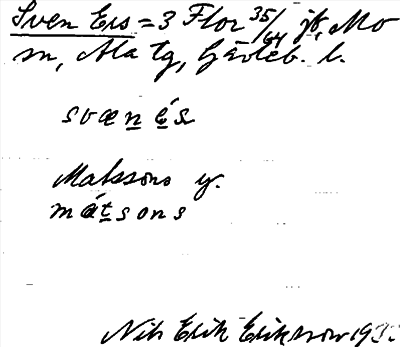 Sven Ers = 3 Flor 35/64 jb, Mo
sn, Ala tg, Gävleb. l.
svænés
Matssons g.
mátsons
Nils Erik Eriksson 193